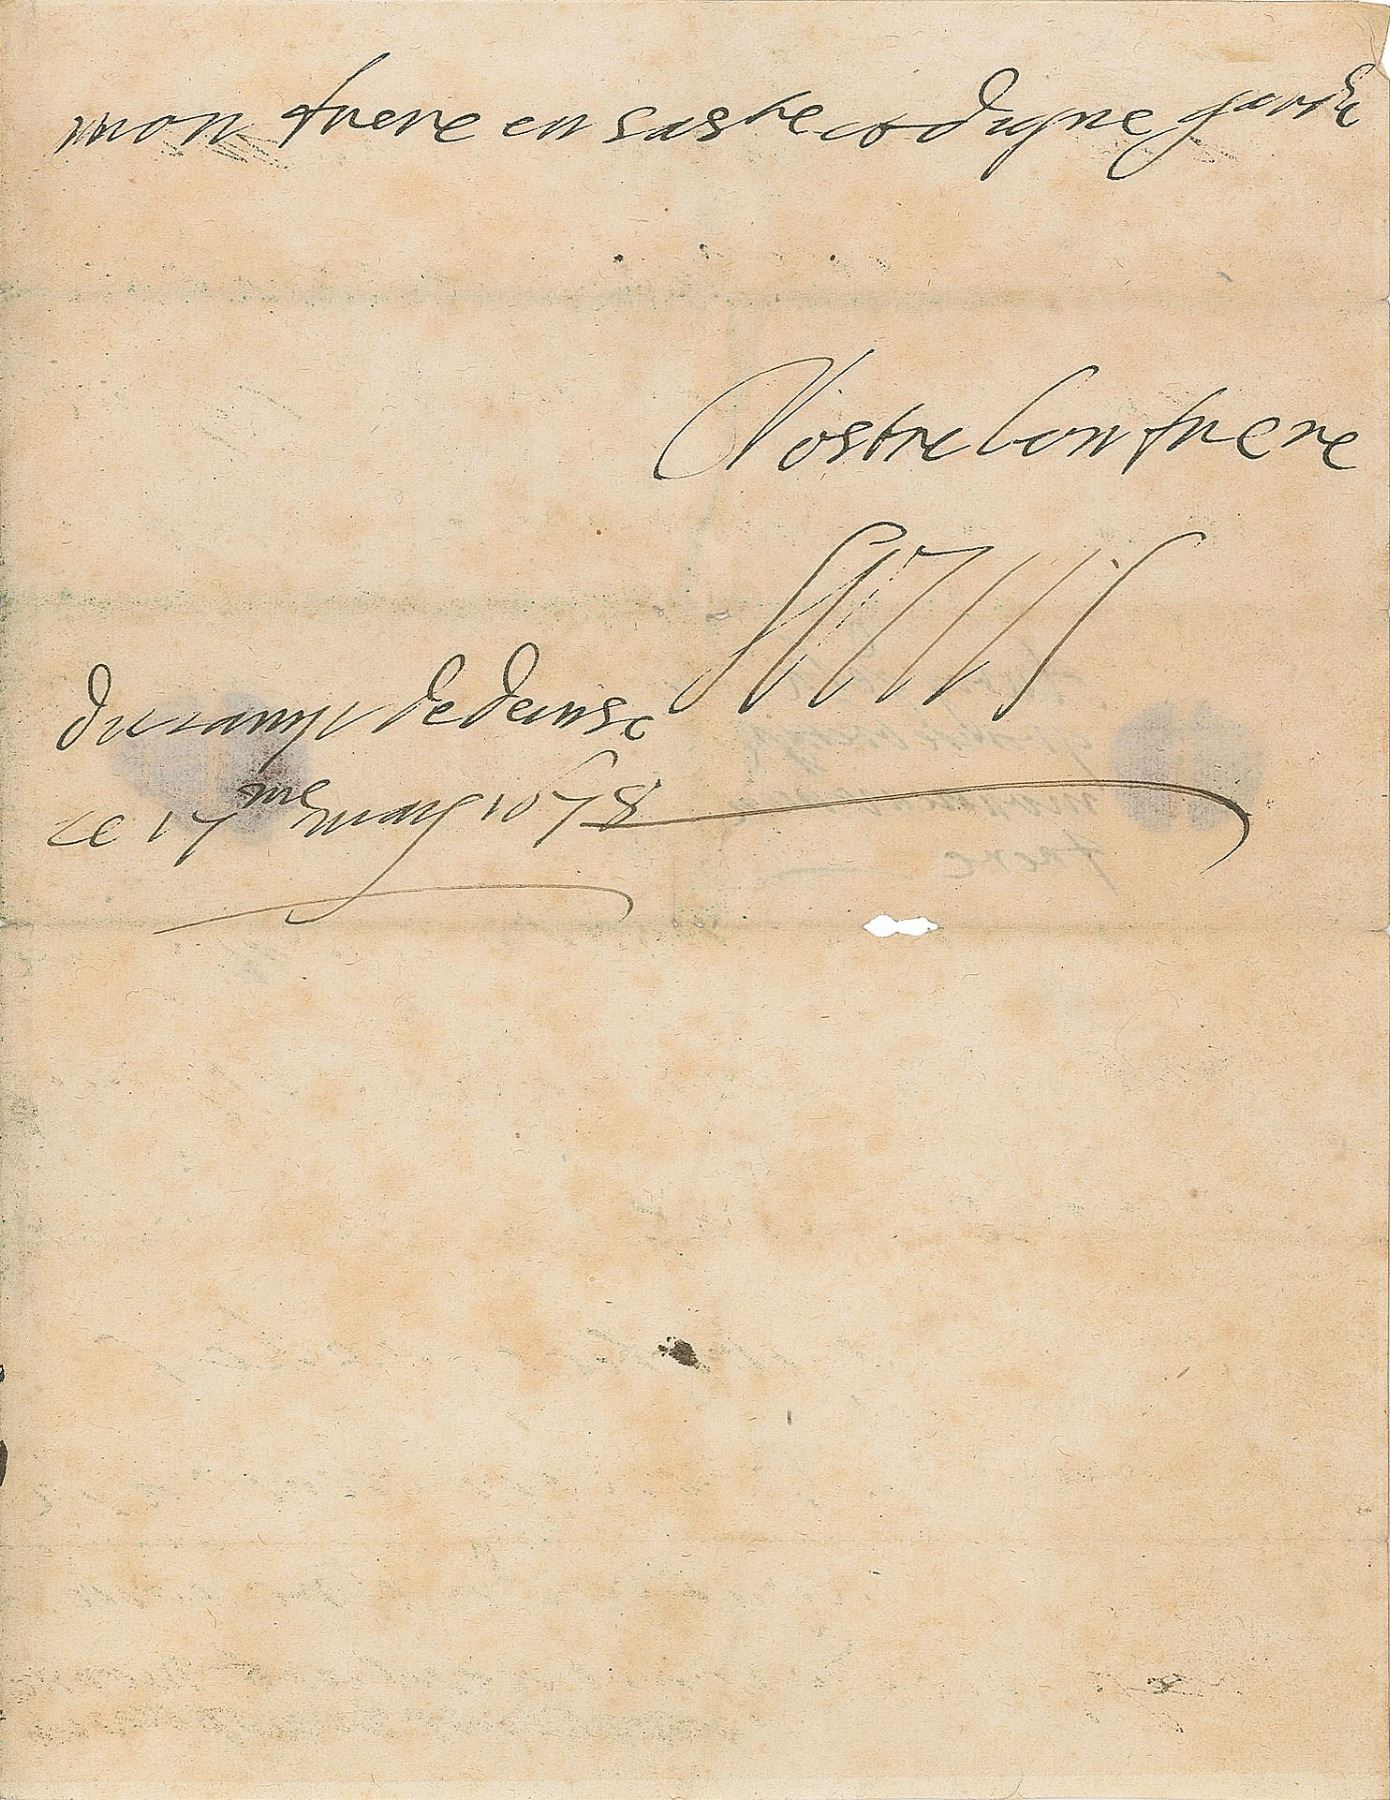 mon frere en saste et digne garde
Vostre bon frere
LOUIS
du camp de deinse
ce 17me may 1678
frere